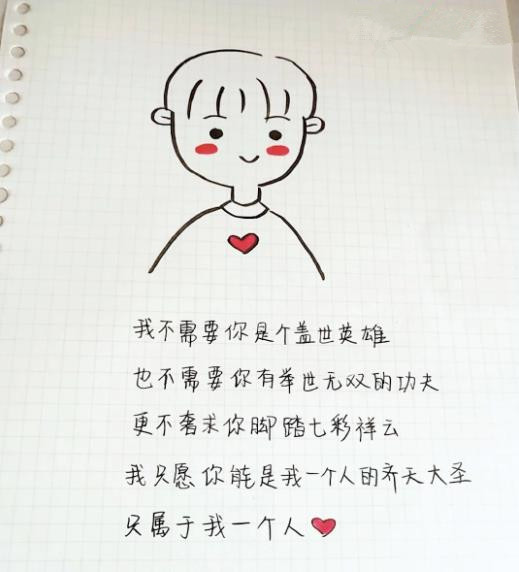 我不需要你是个盖世英雄
也不需要你有举世无双的功夫
更不奢求你脚踏七彩祥云
我只愿你能是我一个人的齐天大圣
只属于我一个人